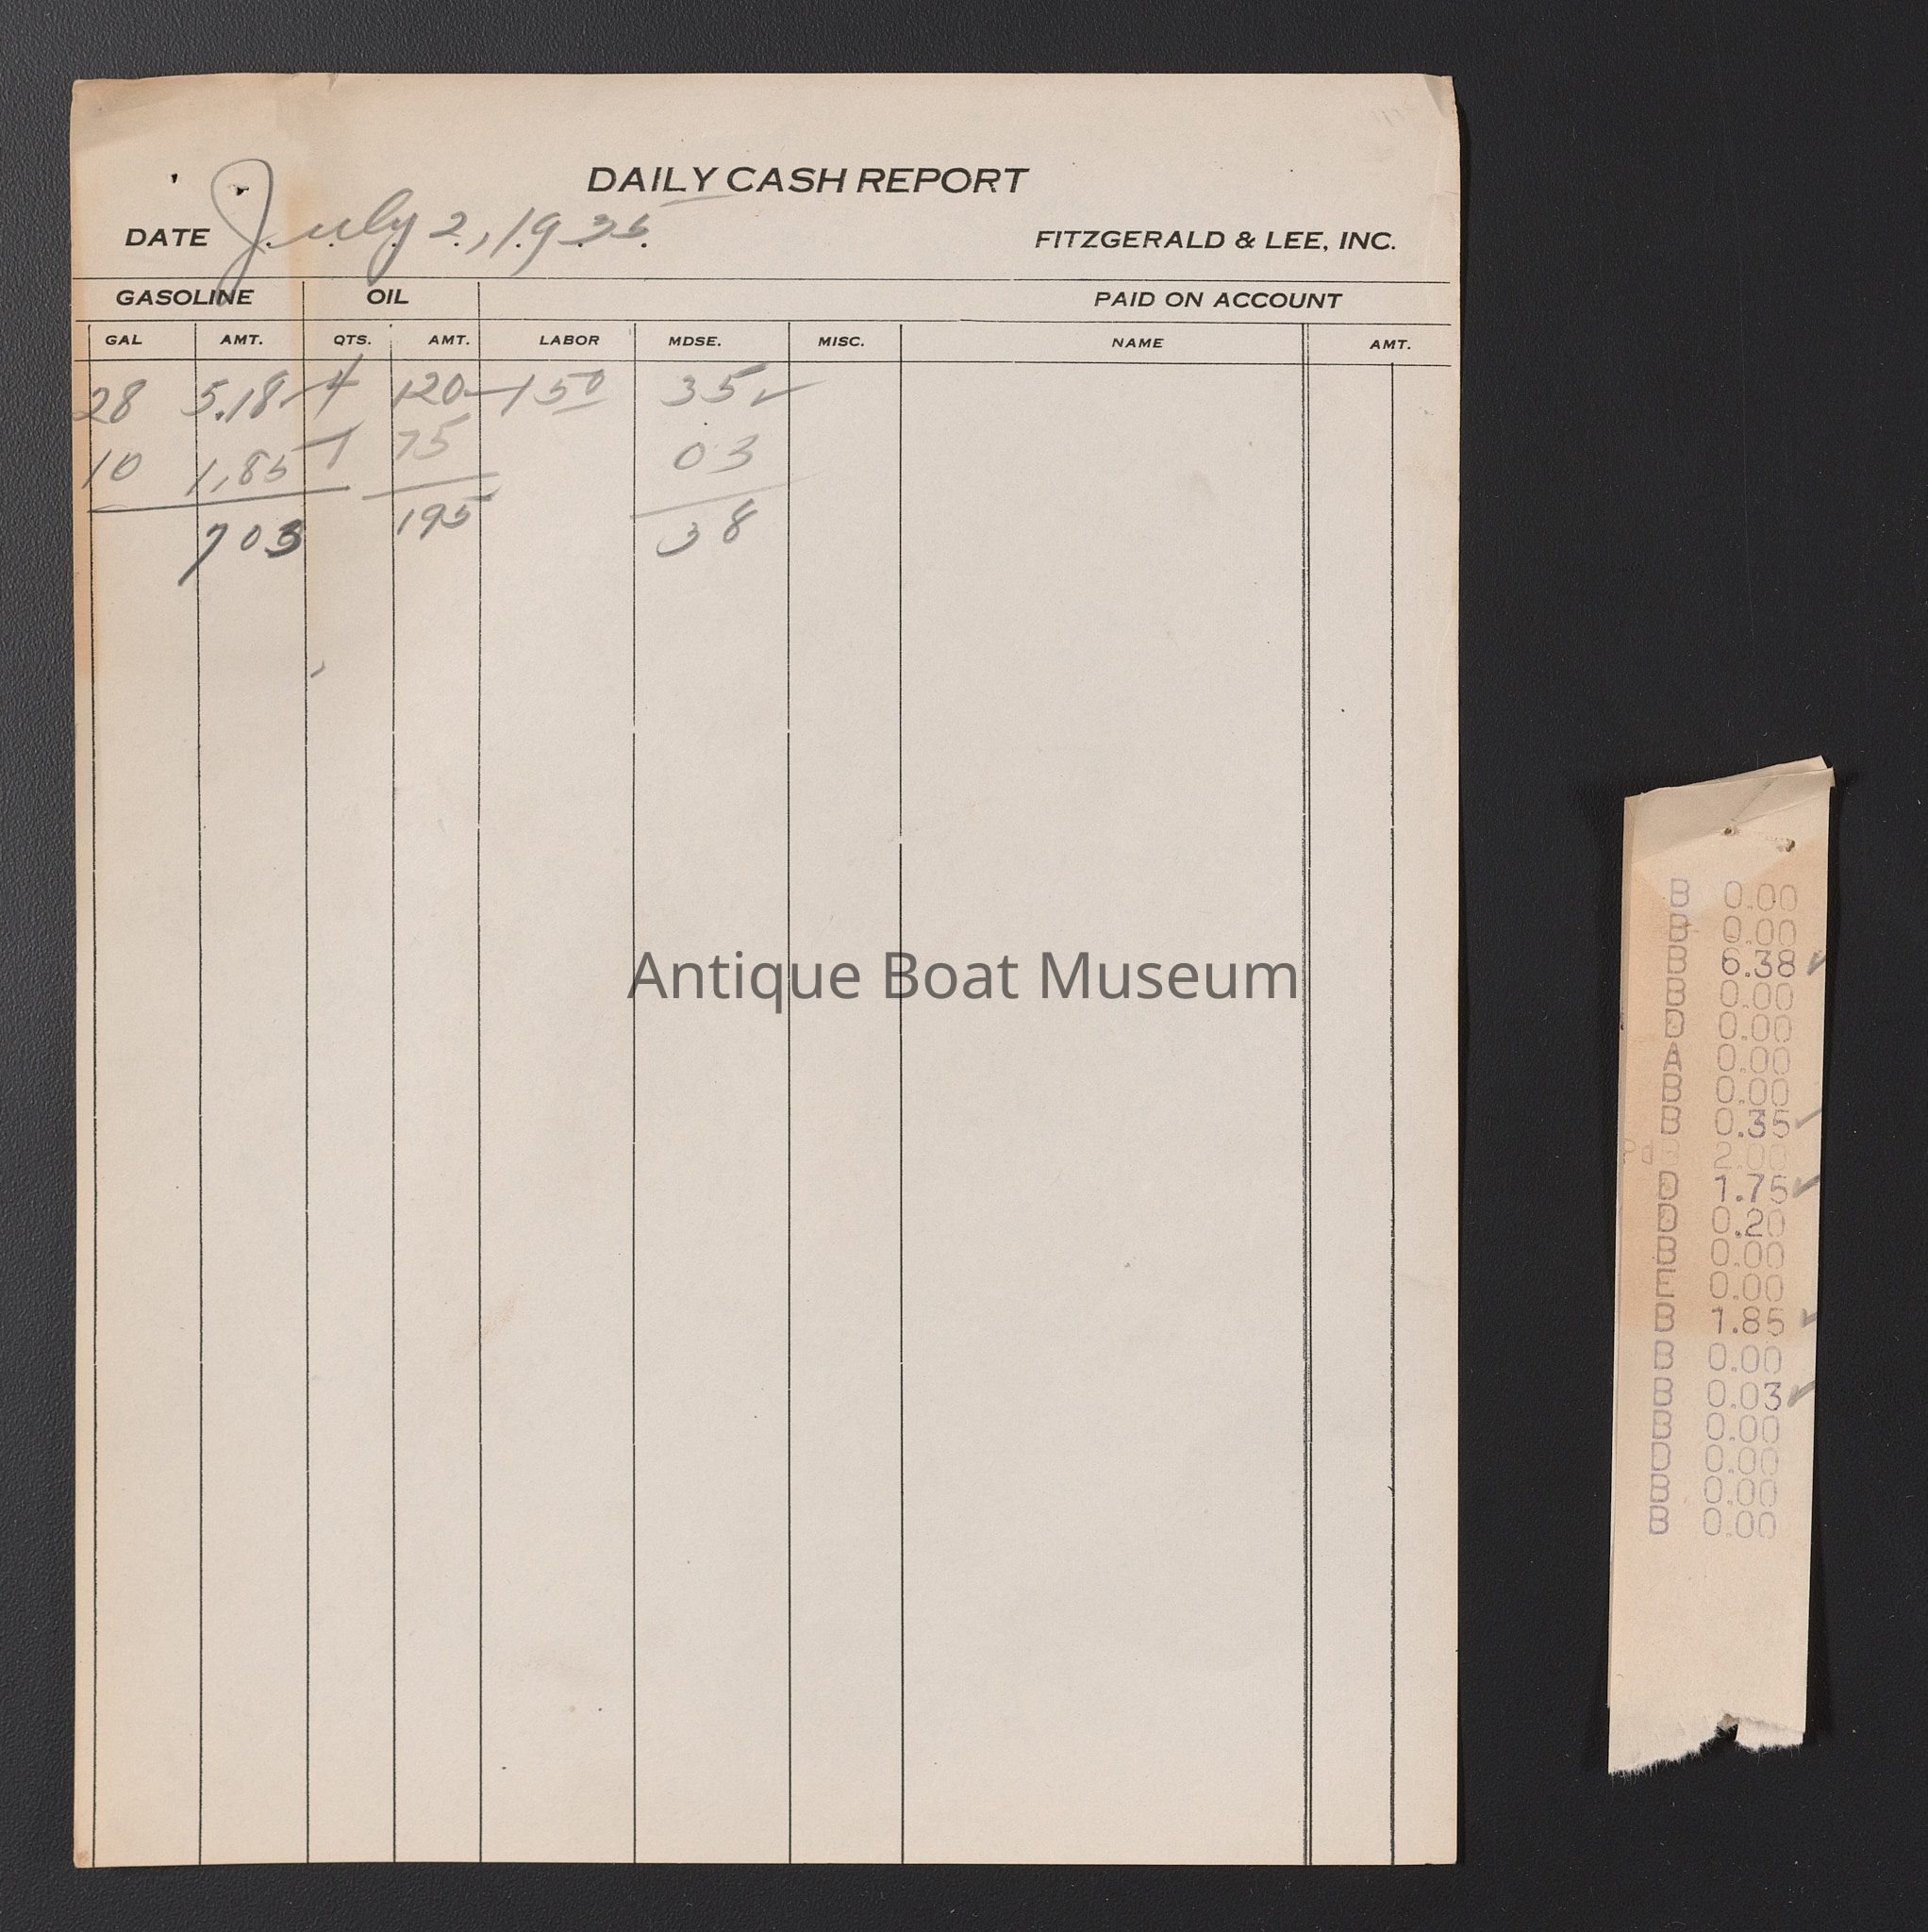 DAILY CASH REPORT
DATE July 2, 1935 FITZGERALD & LEE, INC.
GASOLINE OIL PAID ON ACCOUNT
GAL AMT. QTS. AMT. LABOR MDSE. MISC. NAME AMT.
28 5.18 4 120 150 35 ✓
10 1.85 1 75 03
703 195 38
Antique Boat Museum
B 0.00
B 0.00
B 6.38 ✓
B 0.00
D 0.00
A 0.00
B 0.00
B 0.35 ✓
Pd 2.00
D 1.75 ✓
D 0.20
B 0.00
E 0.00
B 1.85 ✓
B 0.00
B 0.03 ✓
B 0.00
D 0.00
B 0.00
B 0.00